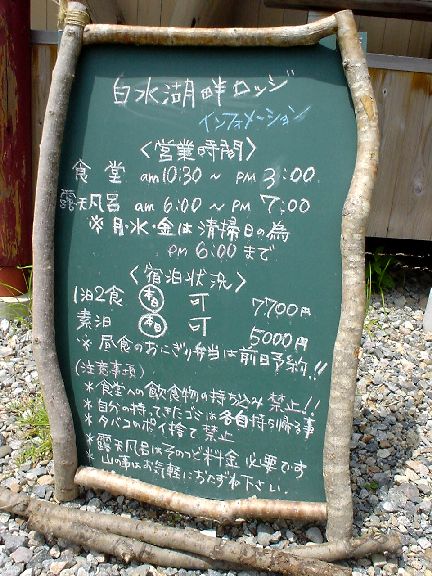 白水湖畔ロッジ
インフォメーション
〈営業時間〉
食堂 am 10:30 ~ PM 3:00
露天風呂 am 6:00 ~ PM 7:00
※月・水・金は清掃日の為
PM 6:00 まで
〈宿泊状況〉
1泊2食 本日 可 7700円
素泊 本日 可 5000円
※昼食のおにぎり弁当は前日予約!!
(注意事項)
*食堂への飲食物の持ち込み禁止!!
*自分の持ってきたゴミは各自持ち帰る事
*タバコのポイ捨て禁止
*露天風呂はそのつど料金必要です
*山の事はお気軽におたずね下さい.